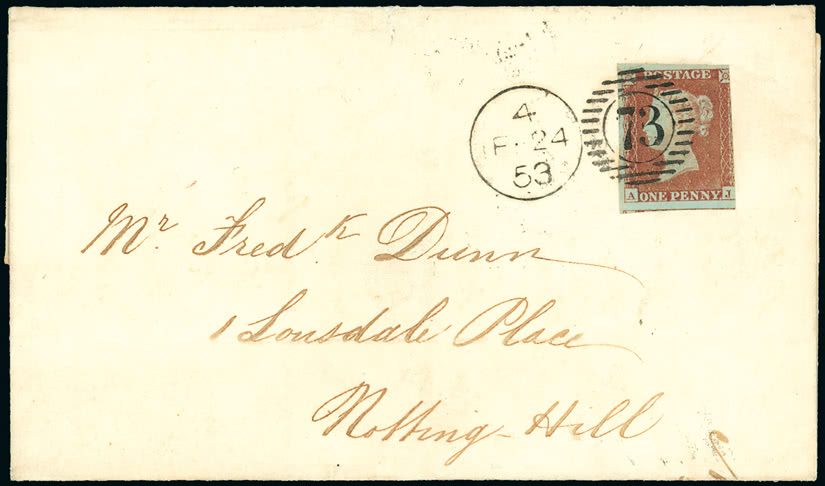 4
F· 24
53
POSTAGE
73
A ONE PENNY J
Mr. Fredk Dunn
1 Lonsdale Place
Notting-Hill